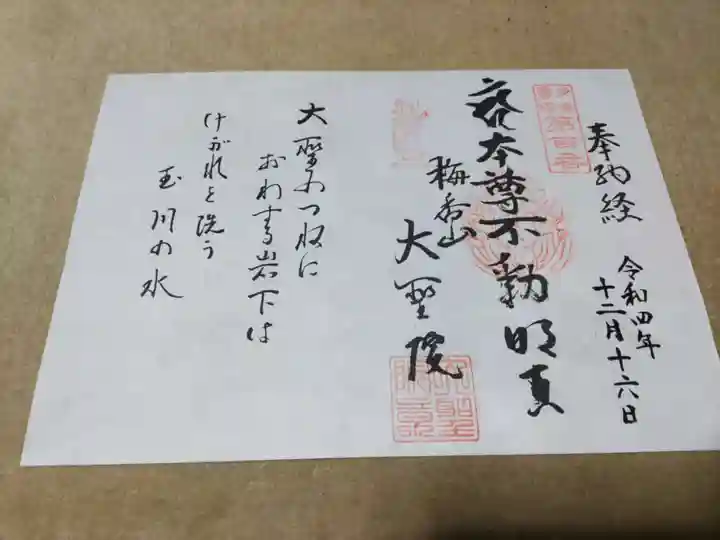 奉納経
令和四年
十二月十六日
本尊不動明真
梅香山
大聖院
大聖わつねに
おわする岩下は
けがれを洗う
玉川の水